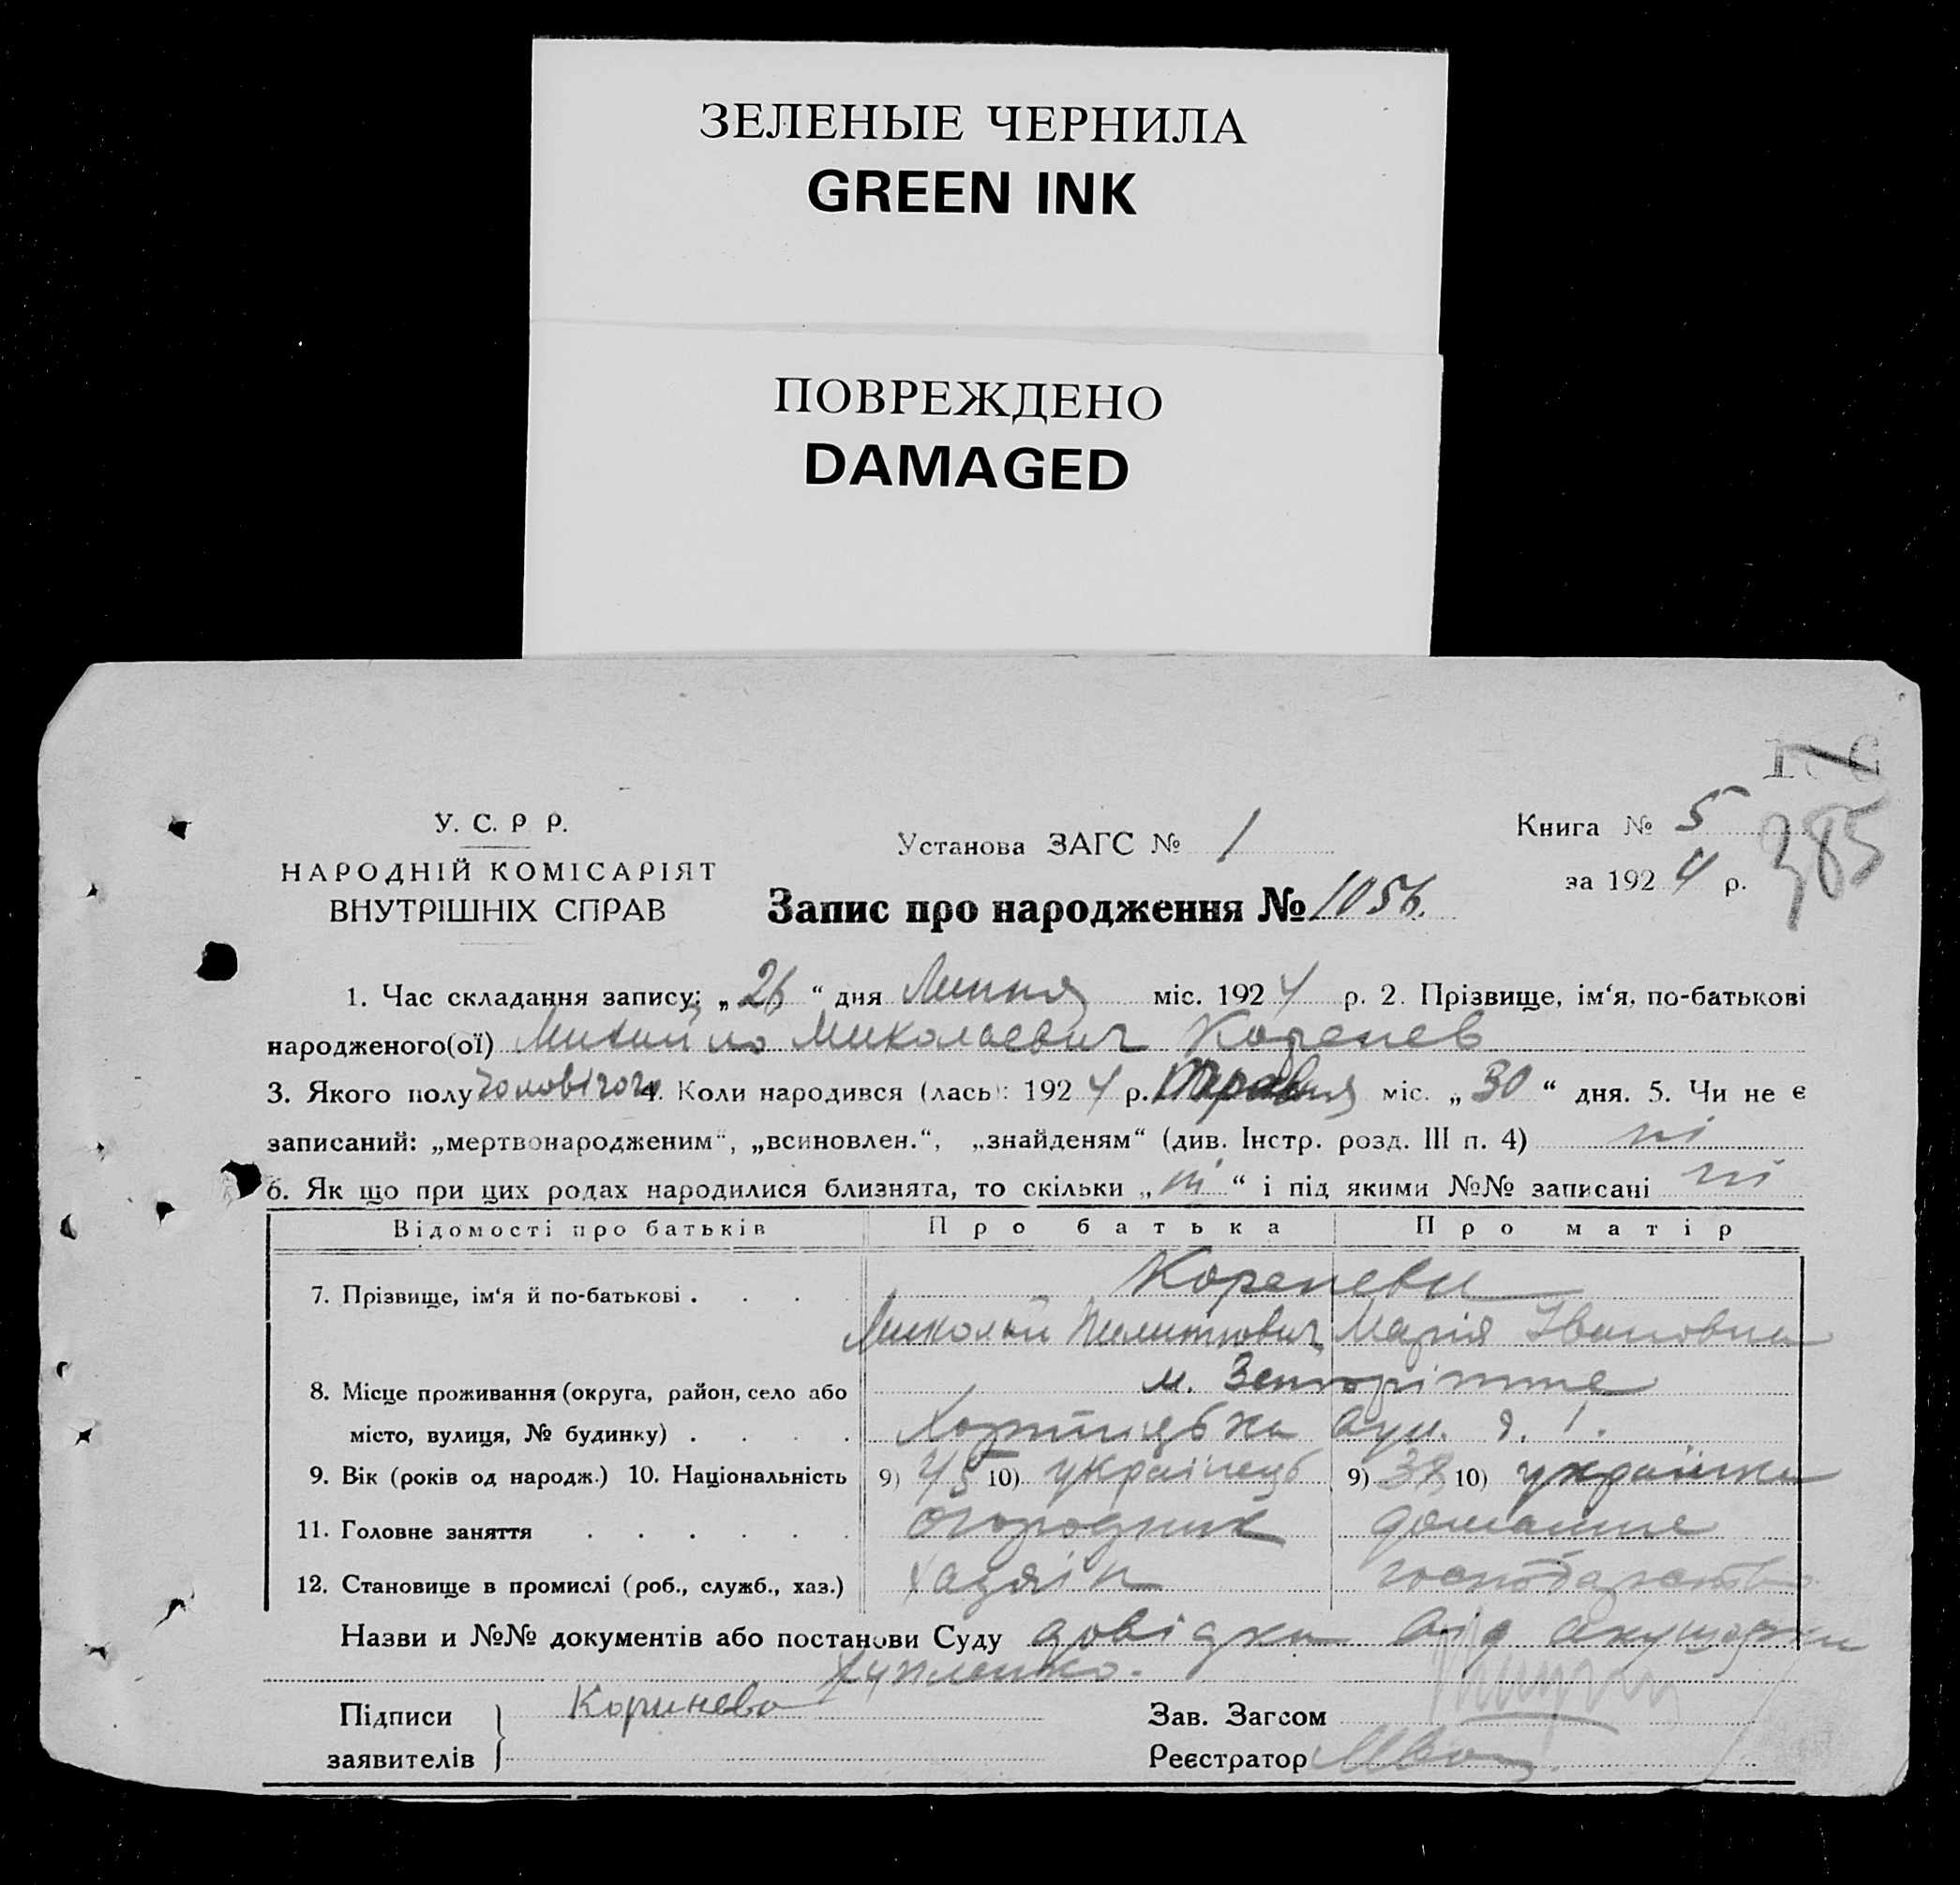 ЗЕЛЕНЫЕ ЧЕРНИЛА
GREEN INK
ПОВРЕЖДЕНО
DAMAGED
У. С. Р Р.
НАРОДНІЙ КОМІСАРІЯТ
ВНУТРІШНІХ СПРАВ
Установа ЗАГС № 1
Запис про народження № 1056.
Книга № 5
за 1924 р.
385
1. Час складання запису: „ 26 “ дня Липня міс. 1924 р. 2. Прізвище, ім‘я, по-батькові
народженого(ої) Михайло Миколаевич Коренев
3. Якого полу чоловічого 4. Коли народився (лась): 1924 р. Травня міс. „ 30 “ дня. 5. Чи не є
записаний: „мертвонародженим“, „всиновлен.“, „знайденям“ (див. Інстр. розд. III п. 4) ні
6. Як що при цих родах народилися близнята, то скільки „ ні “ і під якими №№ записані ні
Відомості про батьків Про батька Про матір
7. Прізвище, ім‘я й по-батькові . . . . Кореневи
Миколай Марія Івановна
8. Місце проживання (округа, район, село або м.
місто, вулиця, № будинку) . . . . Хортицька вул. 1.
9. Вік (років од народж.) 10. Національність 9) 45 10) українець 9) 38 10) українка
11. Головне заняття . . . . . . огородник домашнє
12. Становище в промислі (роб., служб., хаз.) хазяїн господарство
Назви и №№ документів або постанови Суду довідка від акушерки
Підписи Коринева
заявителів
Зав. Загсом
Реєстратор